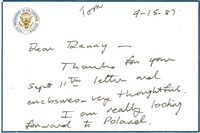 Tom
9-15-87
Dear Danny —
Thanks for your
Sept 11th letter and
enclosures — very thoughtful.
I am really looking
forward to Poland.